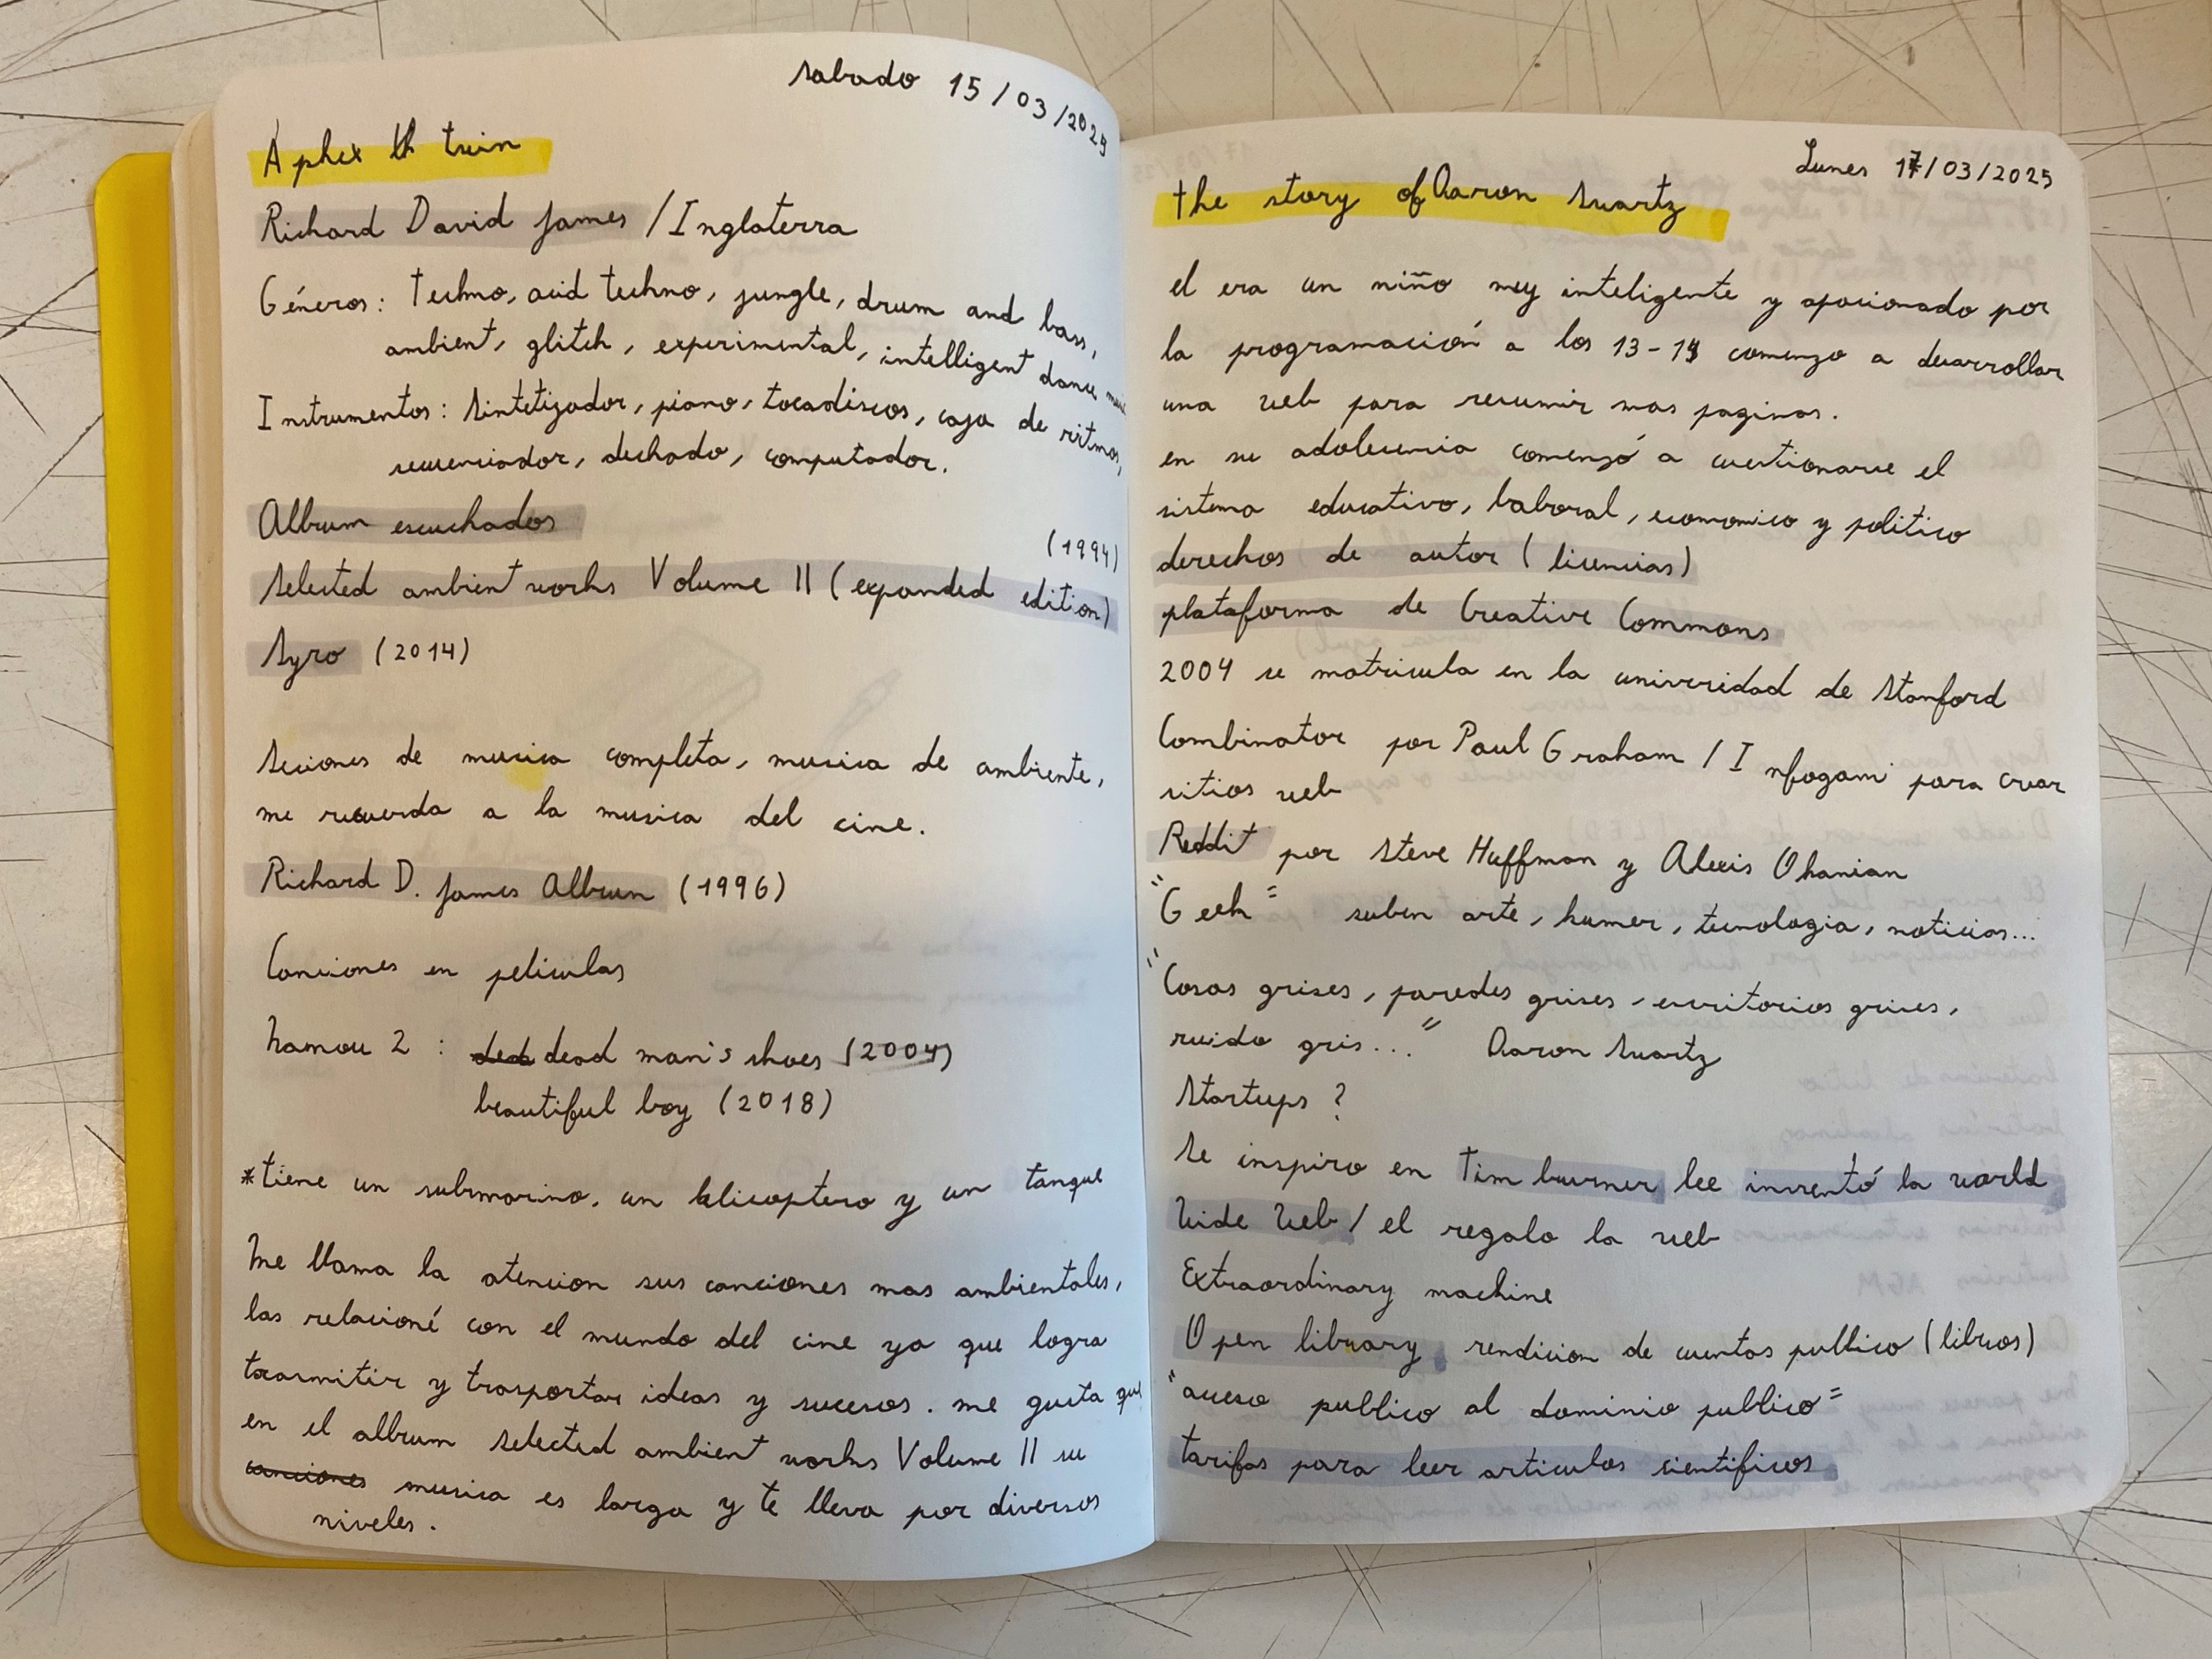 sabado 15/03/2025
Aphex twin
Richard David James / Inglaterra
Géneros: Techno, acid techno, jungle, drum and bass,
ambient, glitch, experimental, intelligent dance music
Instrumentos: Sintetizador, piano, tocadiscos, caja de ritmos,
secuenciador, techado, computador.
Album escuchados
(1994)
Selected ambient works Volume II (expanded edition)
Syro (2014)
Seciones de musica completa, musica de ambiente,
me recuerda a la musica del cine.
Richard D. James Album (1996)
Canciones en peliculas
Nanou 2: dead man's shoes (2004)
beautiful boy (2018)
*tiene un submarino, un helicoptero y un tanque
Me llama la atencion sus canciones mas ambientales,
las relacioné con el mundo del cine ya que logra
trasmitir y trasportar ideas y sucesos. me gusta que
en el album selected ambient works Volume II su
canciones musica es larga y te lleva por diversos
niveles.
Lunes 17/03/2025
the story of Aaron Swartz
el era un niño muy inteligente y apacionado por
la programación a los 13-14 comenzo a desarrollar
una web para resumir mas paginas.
en su adolecencia comenzó a cuestionarse el
sistema educativo, laboral, economico y politico
derechos de autor (licencias)
plataforma de Creative Commons
2004 se matricula en la universidad de Stanford
Combinator por Paul Graham / Infogami para crear
sitios web
Reddit por Steve Huffman y Alexis Ohanian
"Geek" suben arte, humor, tecnologia, noticias...
"Cosas grises, paredes grises, escritorios grises,
ruido gris..." Aaron Swartz
Startups?
Se inspiro en Tim burner lee inventó la world
Wide Web / el regalo la web
Extraordinary machine
Open library rendicion de cuentas publico (libros)
"acceso publico al dominio publico"
tarifas para leer articulos cientificos